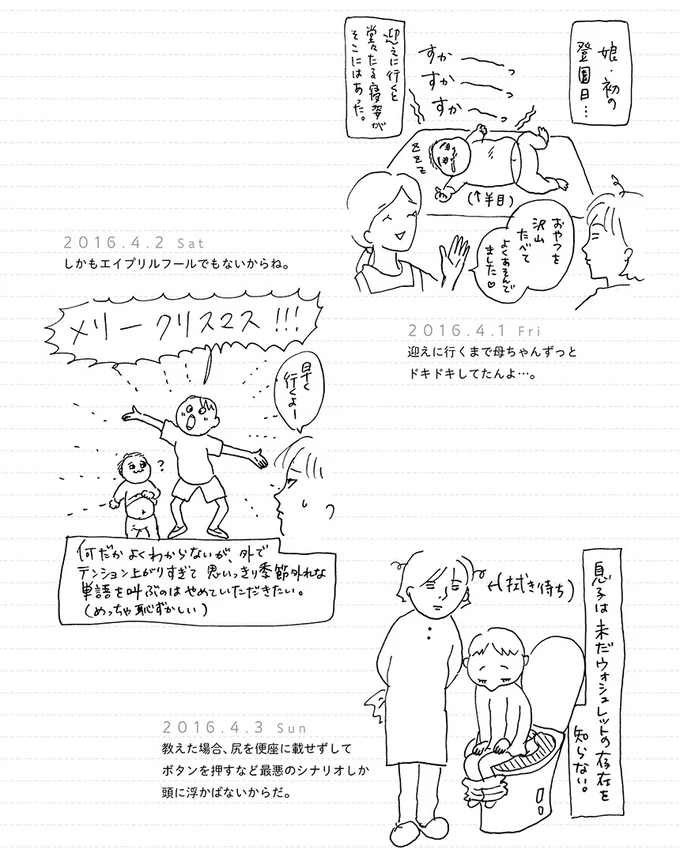 娘・初の
登園日…
迎えに行くと
堂々たる寝姿が
そこにはあった。
すかーーっ
すかーーっ
すかーーっ
(↑半目)
おやつを
沢山
たべて
よくあそんで
ました♡
2016.4.1 Fri
迎えに行くまで母ちゃんずっと
ドキドキしてたんよ…。
2016.4.2 Sat
しかもエイプリルフールでもないからね。
メリークリスマス!!!
早く
行くよー
?
何だかよくわからないが、外で
テンション上がりすぎて思いっきり季節外れな
単語を叫ぶのはやめていただきたい。
(めっちゃ恥ずかしい)
息子は未だウォシュレットの存在を
知らない。
←(拭き待ち)
2016.4.3 Sun
教えた場合、尻を便座に載せずして
ボタンを押すなど最悪のシナリオしか
頭に浮かばないからだ。